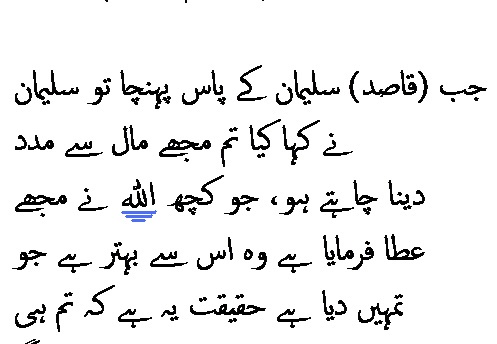 جب (قاصد) سلیمان کے پاس پہنچا تو سلیمان
نے کہا کیا تم مجھے مال سے مدد
دینا چاہتے ہو، جو کچھ اللہ نے مجھے
عطا فرمایا ہے وہ اس سے بہتر ہے جو
تمہیں دیا ہے حقیقت یہ ہے کہ تم ہی